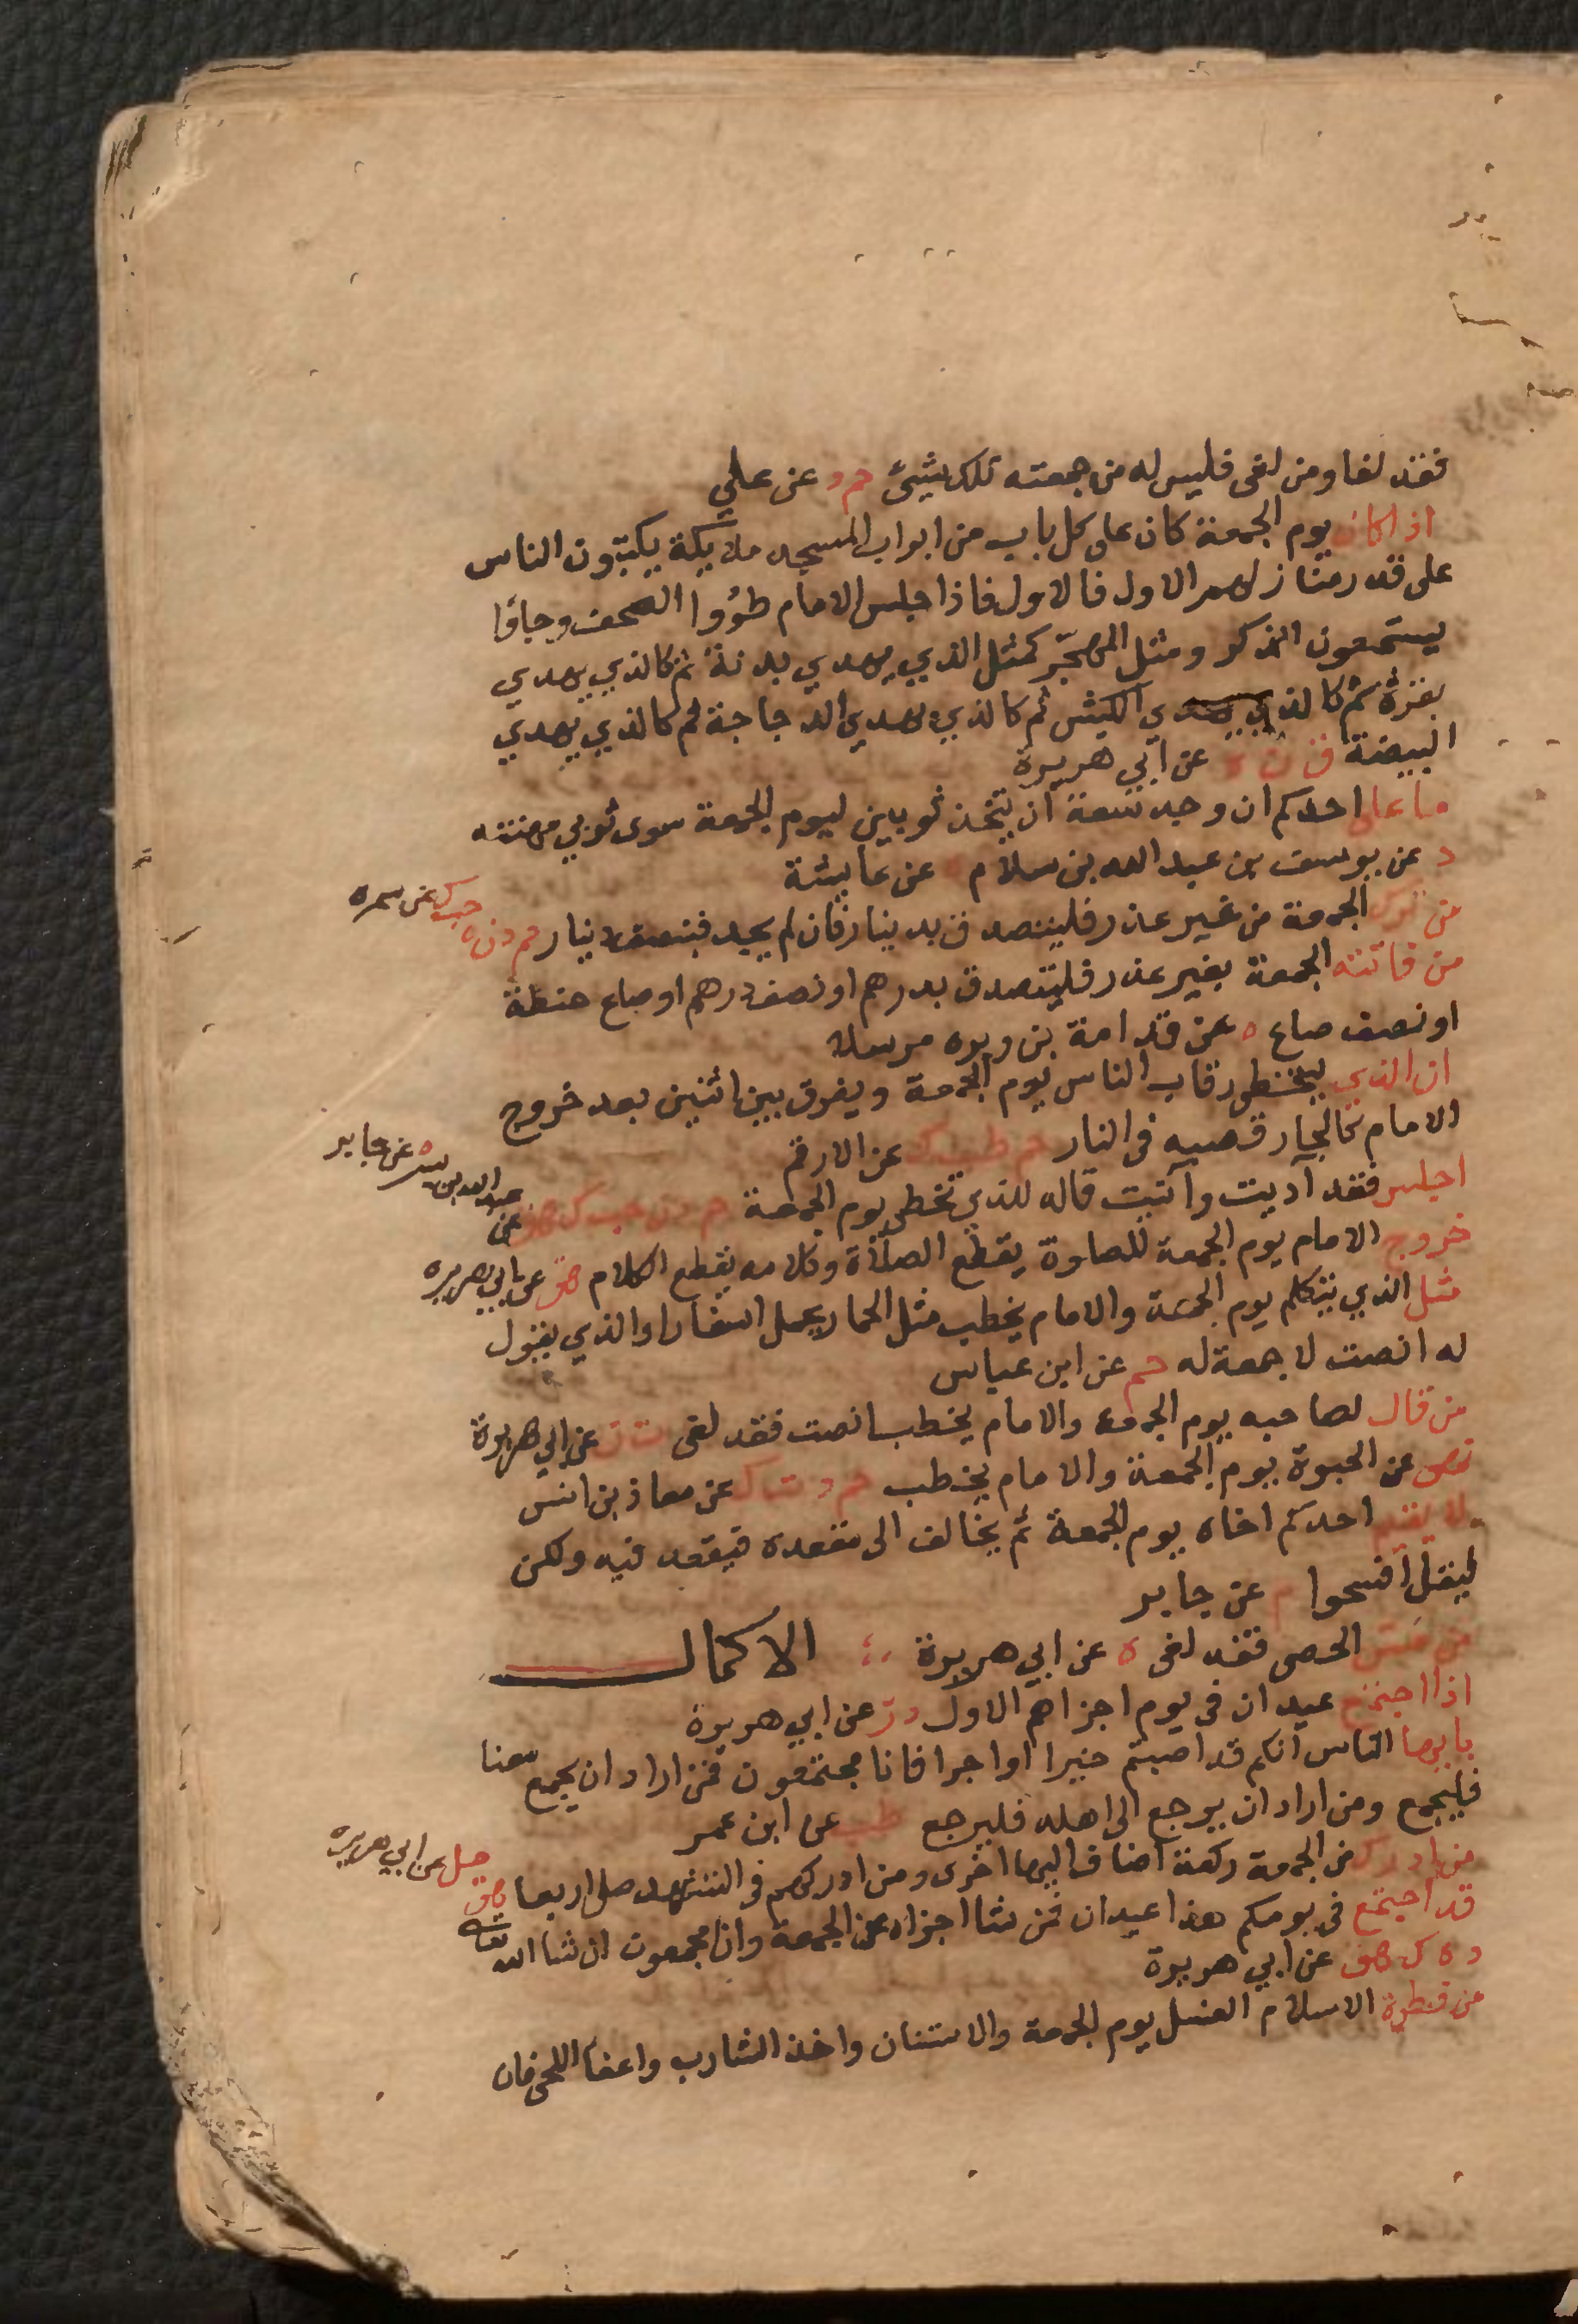 فقد لغا ومن لغى فليس له من جمعته تلك شيئ حم د عن علي
اذا كان يوم الجمعة كان على كل باب من ابواب المسجد ملائكة يكتبون الناس
على قدر منازلهم الاول فالاول فاذا جلس الامام طووا الصحف وجاؤا
يستمعون الذكر ومثل المهجّر كمثل الذي يهدي بدنة ثم كالذي يهدي
بقرة ثم كالذي يهدي الكبش ثم كالذي يهدي الدجاجة ثم كالذي يهدي
البيضة ق ن ه عن ابي هريرة
ما على احدكم ان وجد سعة ان يتخذ ثوبين ليوم الجمعة سوى ثوبي مهنته
د عن يوسف بن عبد الله بن سلام ه عن عايشة
من ترك الجمعة من غير عذر فليتصدق بدينار فان لم يجد فبنصف دينار حم د ن ه حب ك عن سمره
من فاتته الجمعة بغير عذر فليتصدق بدرهم او نصف درهم او صاع حنطة
او نصف صاع ه عن قدامة بن وبره مرسلا
ان الذي يتخطى رقاب الناس يوم الجمعة ويفرق بين اثنين بعد خروج
الامام كالجار قصبه في النار حم طب ك عن الارقم
اجلس فقد آذيت وآنيت قاله للذي تخطى يوم الجمعة حم د ن حب ك هق عن عبد الله بن بسر ه عن جابر
خروج الامام يوم الجمعة للصلوة يقطع الصلاة وكلامه يقطع الكلام هق عن ابي هريره
مثل الذي يتكلم يوم الجمعة والامام يخطب مثل الحمار يحمل اسفارا والذي يقول
له انصت لا جمعة له حم عن ابن عباس
من قال لصاحبه يوم الجمعة والامام يخطب انصت فقد لغى ت ن عن ابي هريرة
نهى عن الحبوة يوم الجمعة والامام يخطب حم د ت ك عن معاذ بن انس
لا يقيم احدكم اخاه يوم الجمعة ثم يخالف الى مقعده فيقعد فيه ولكن
ليقل افسحوا م عن جابر
من مس الحصى فقد لغى ه عن ابي هريرة الاكمال
اذا اجتمع عيدان في يوم اجزاهم الاول د ز عن ابي هريرة
يا ايها الناس انكم قد اصبتم خيرا واجرا فانا مجتمعون فمن اراد ان يجمع معنا
فليجمع ومن اراد ان يرجع الى اهله فليرجع طب عن ابن عمر
من ادرك من الجمعة ركعة اضاف اليها اخرى ومن ادركهم في التشهد صلى اربعا هق حل عن ابي هريره
قد اجتمع في يومكم هذا عيدان فمن شا اجزاه عن الجمعة وانا مجمعون ان شا الله تعالى
د ه ك هق عن ابي هريرة
من فطرة الاسلام الغسل يوم الجمعة والاستنان واخذ الشارب واعفا اللحى فان